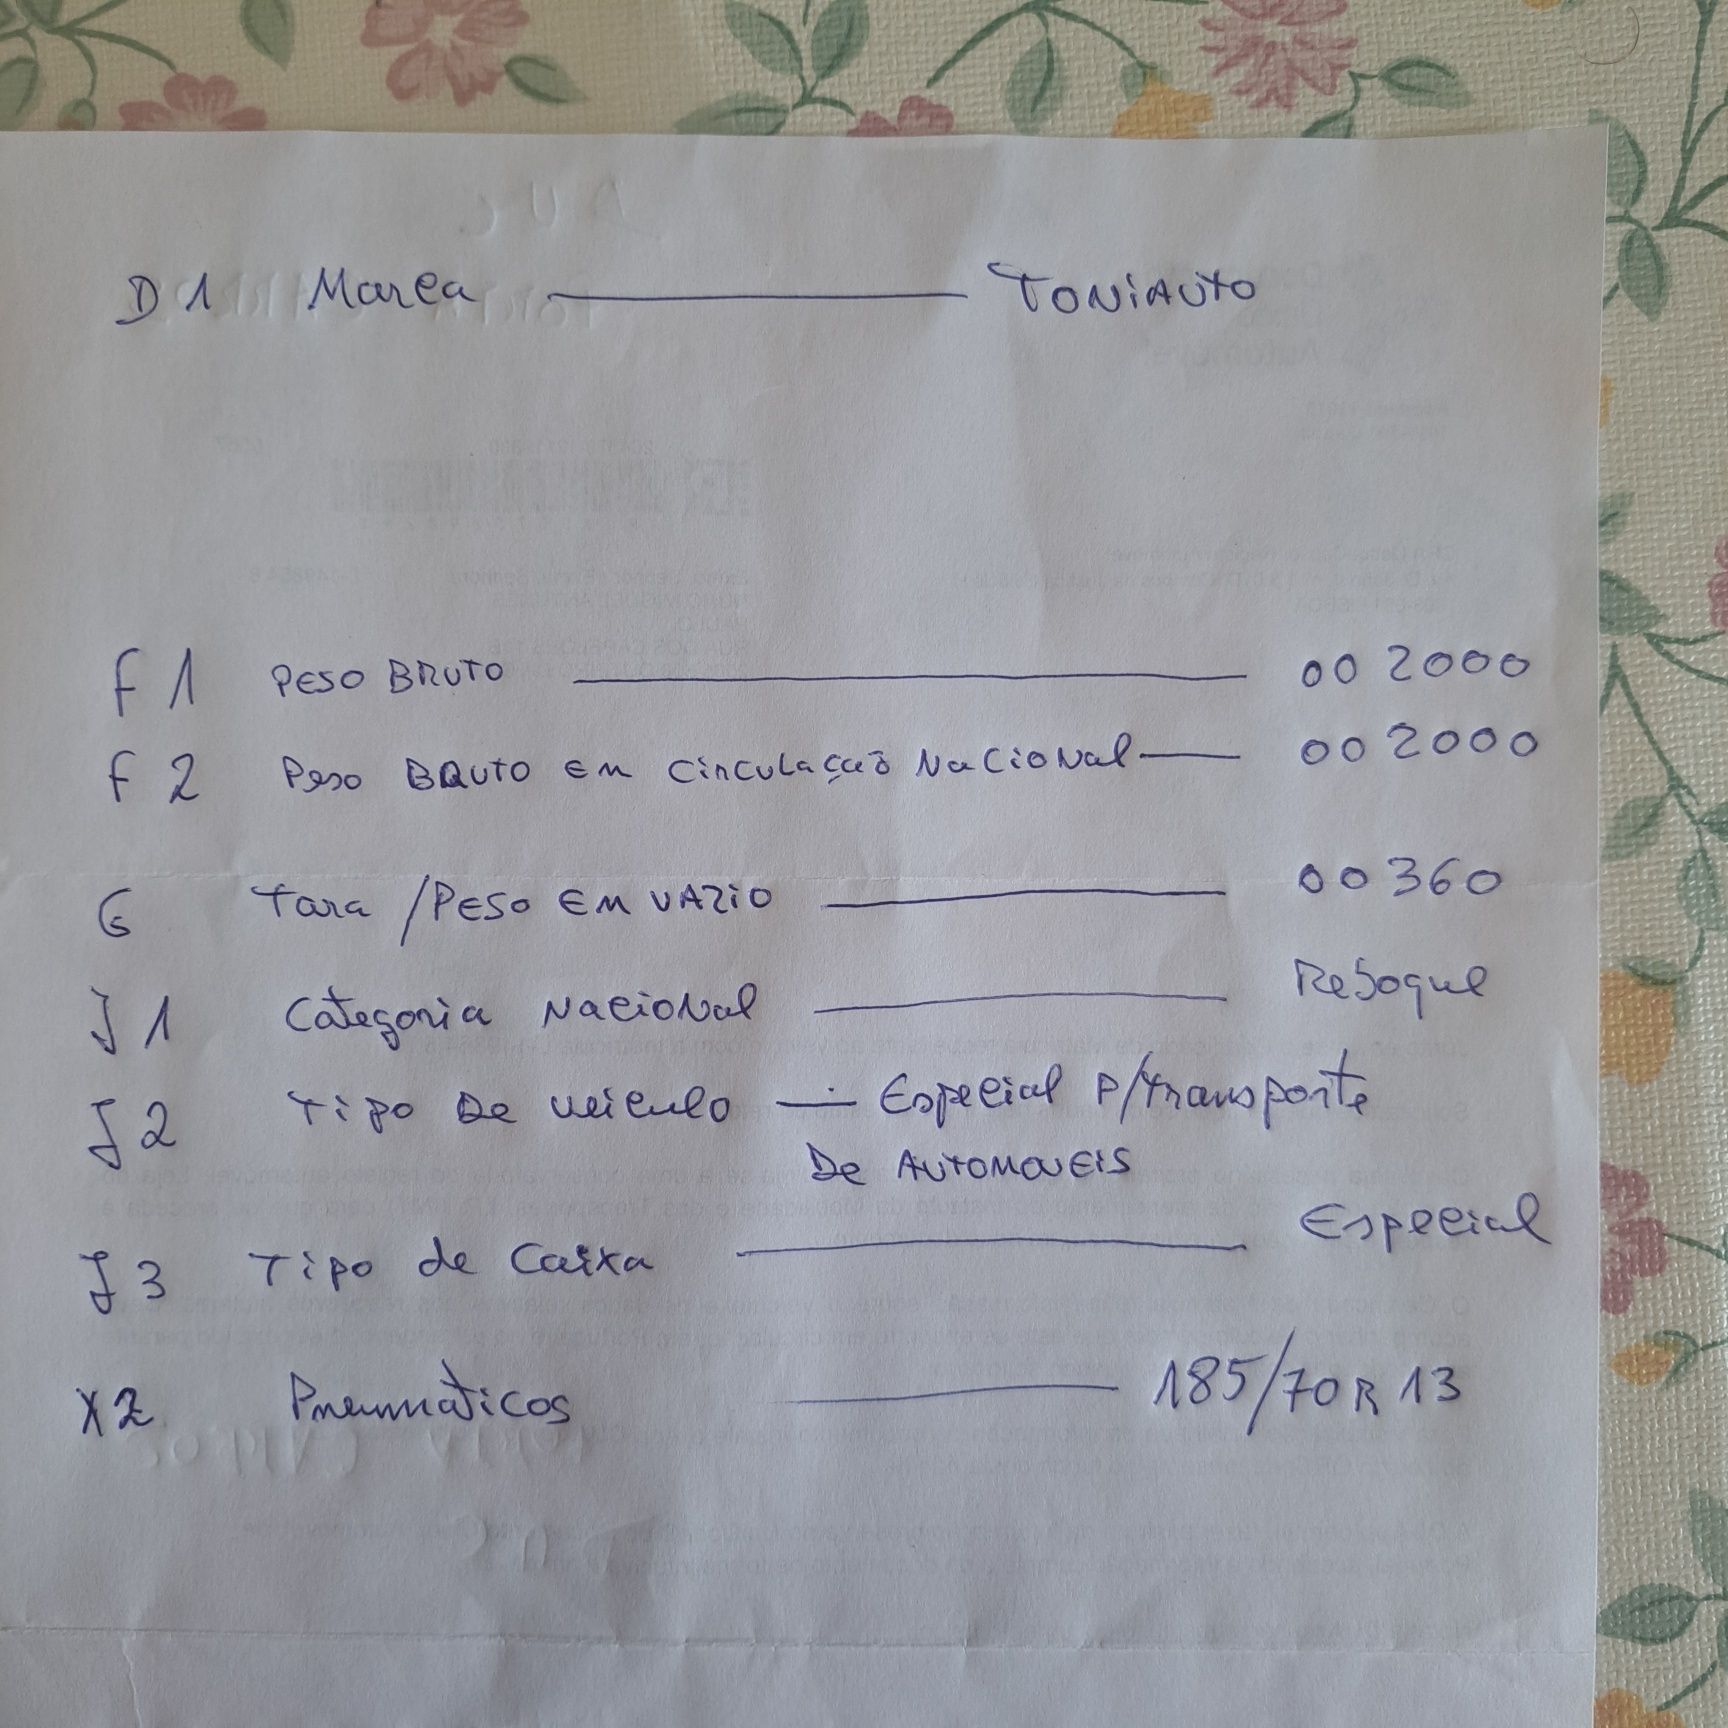 D1 Marca ———— TONiAUTO
F1 PESO BRUTO ———— 002000
F2 Peso BRUTO em CirculaçaÕ NaCioNal — 002000
G Tara / PESO EM VAZIO ———— 00360
J1 Categoria NacioNal ———— Reboque
J2 Tipo De veiculo — Especial P/transporte
De AUTOMOVEIS
J3 Tipo de Caixa ———— Especial
X2 Pneumàticos ———— 185/70R13